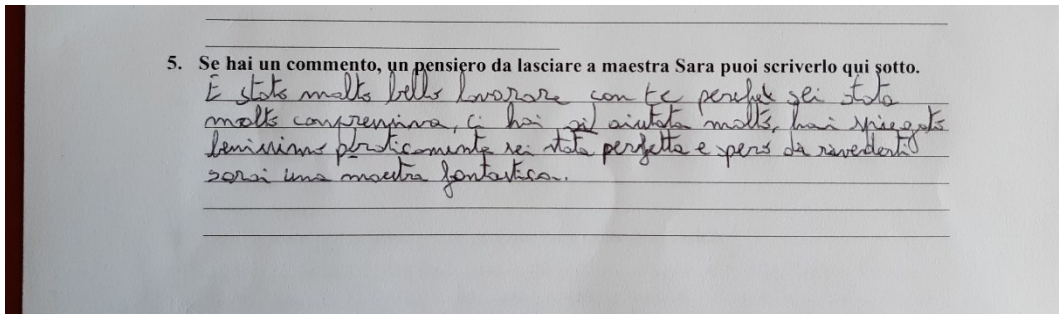 5. Se hai un commento, un pensiero da lasciare a maestra Sara puoi scriverlo qui sotto.
È stato molto bello lavorare con te perché sei stata
molto comprensiva, ci hai aiutata molto, hai spiegato
benissimo praticamente sei stata perfetta e spero di rivederti
sarai una maestra fantastica.